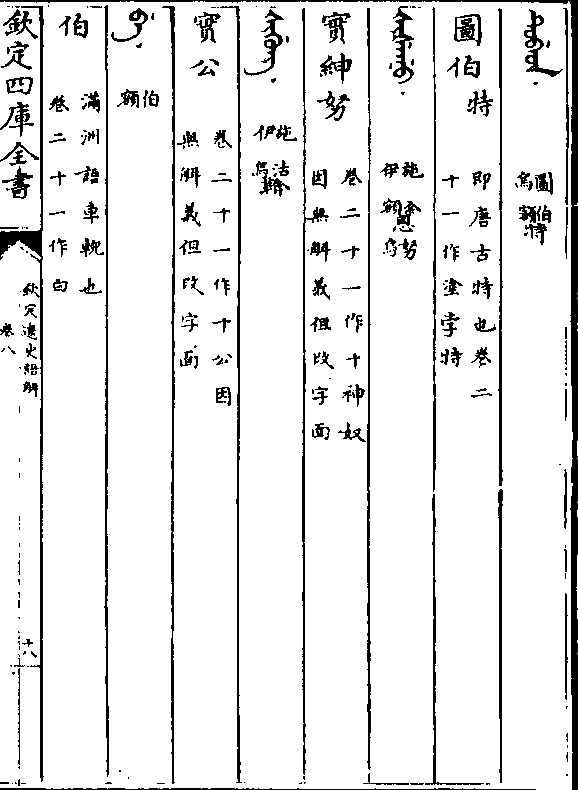 圖伯特
烏額
圖伯特
即唐古特也卷二
十一作塗孛特
施舍努
伊額恩烏
實紳努
卷二十一作十神奴
因無解義但改字面
施沽
伊烏
實公
卷二十一作十公因
無解義但改字面
伯
額
伯
滿洲語車軏也
卷二十一作白
欽定四庫全書
欽定遼史語解
卷八
十八